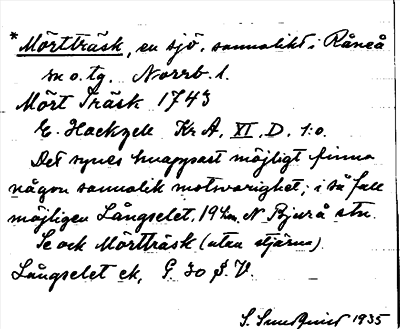 *Mörtträsk, en sjö, sannolikt i Råneå
sn o. tg. Norrb. l.
Mört Träsk 1743
E. Hackzell Kr A, VI, D, 1:o.
Det synes knappast möjligt finna
någon sannolik motsvarighet; i så fall
möjligen Långselet, 19 km N Bjurå stn.
Se ock Mörtträsk (utan stjärna).
Långselet ek. G. 30 S. V.
S. Sundquist 1935